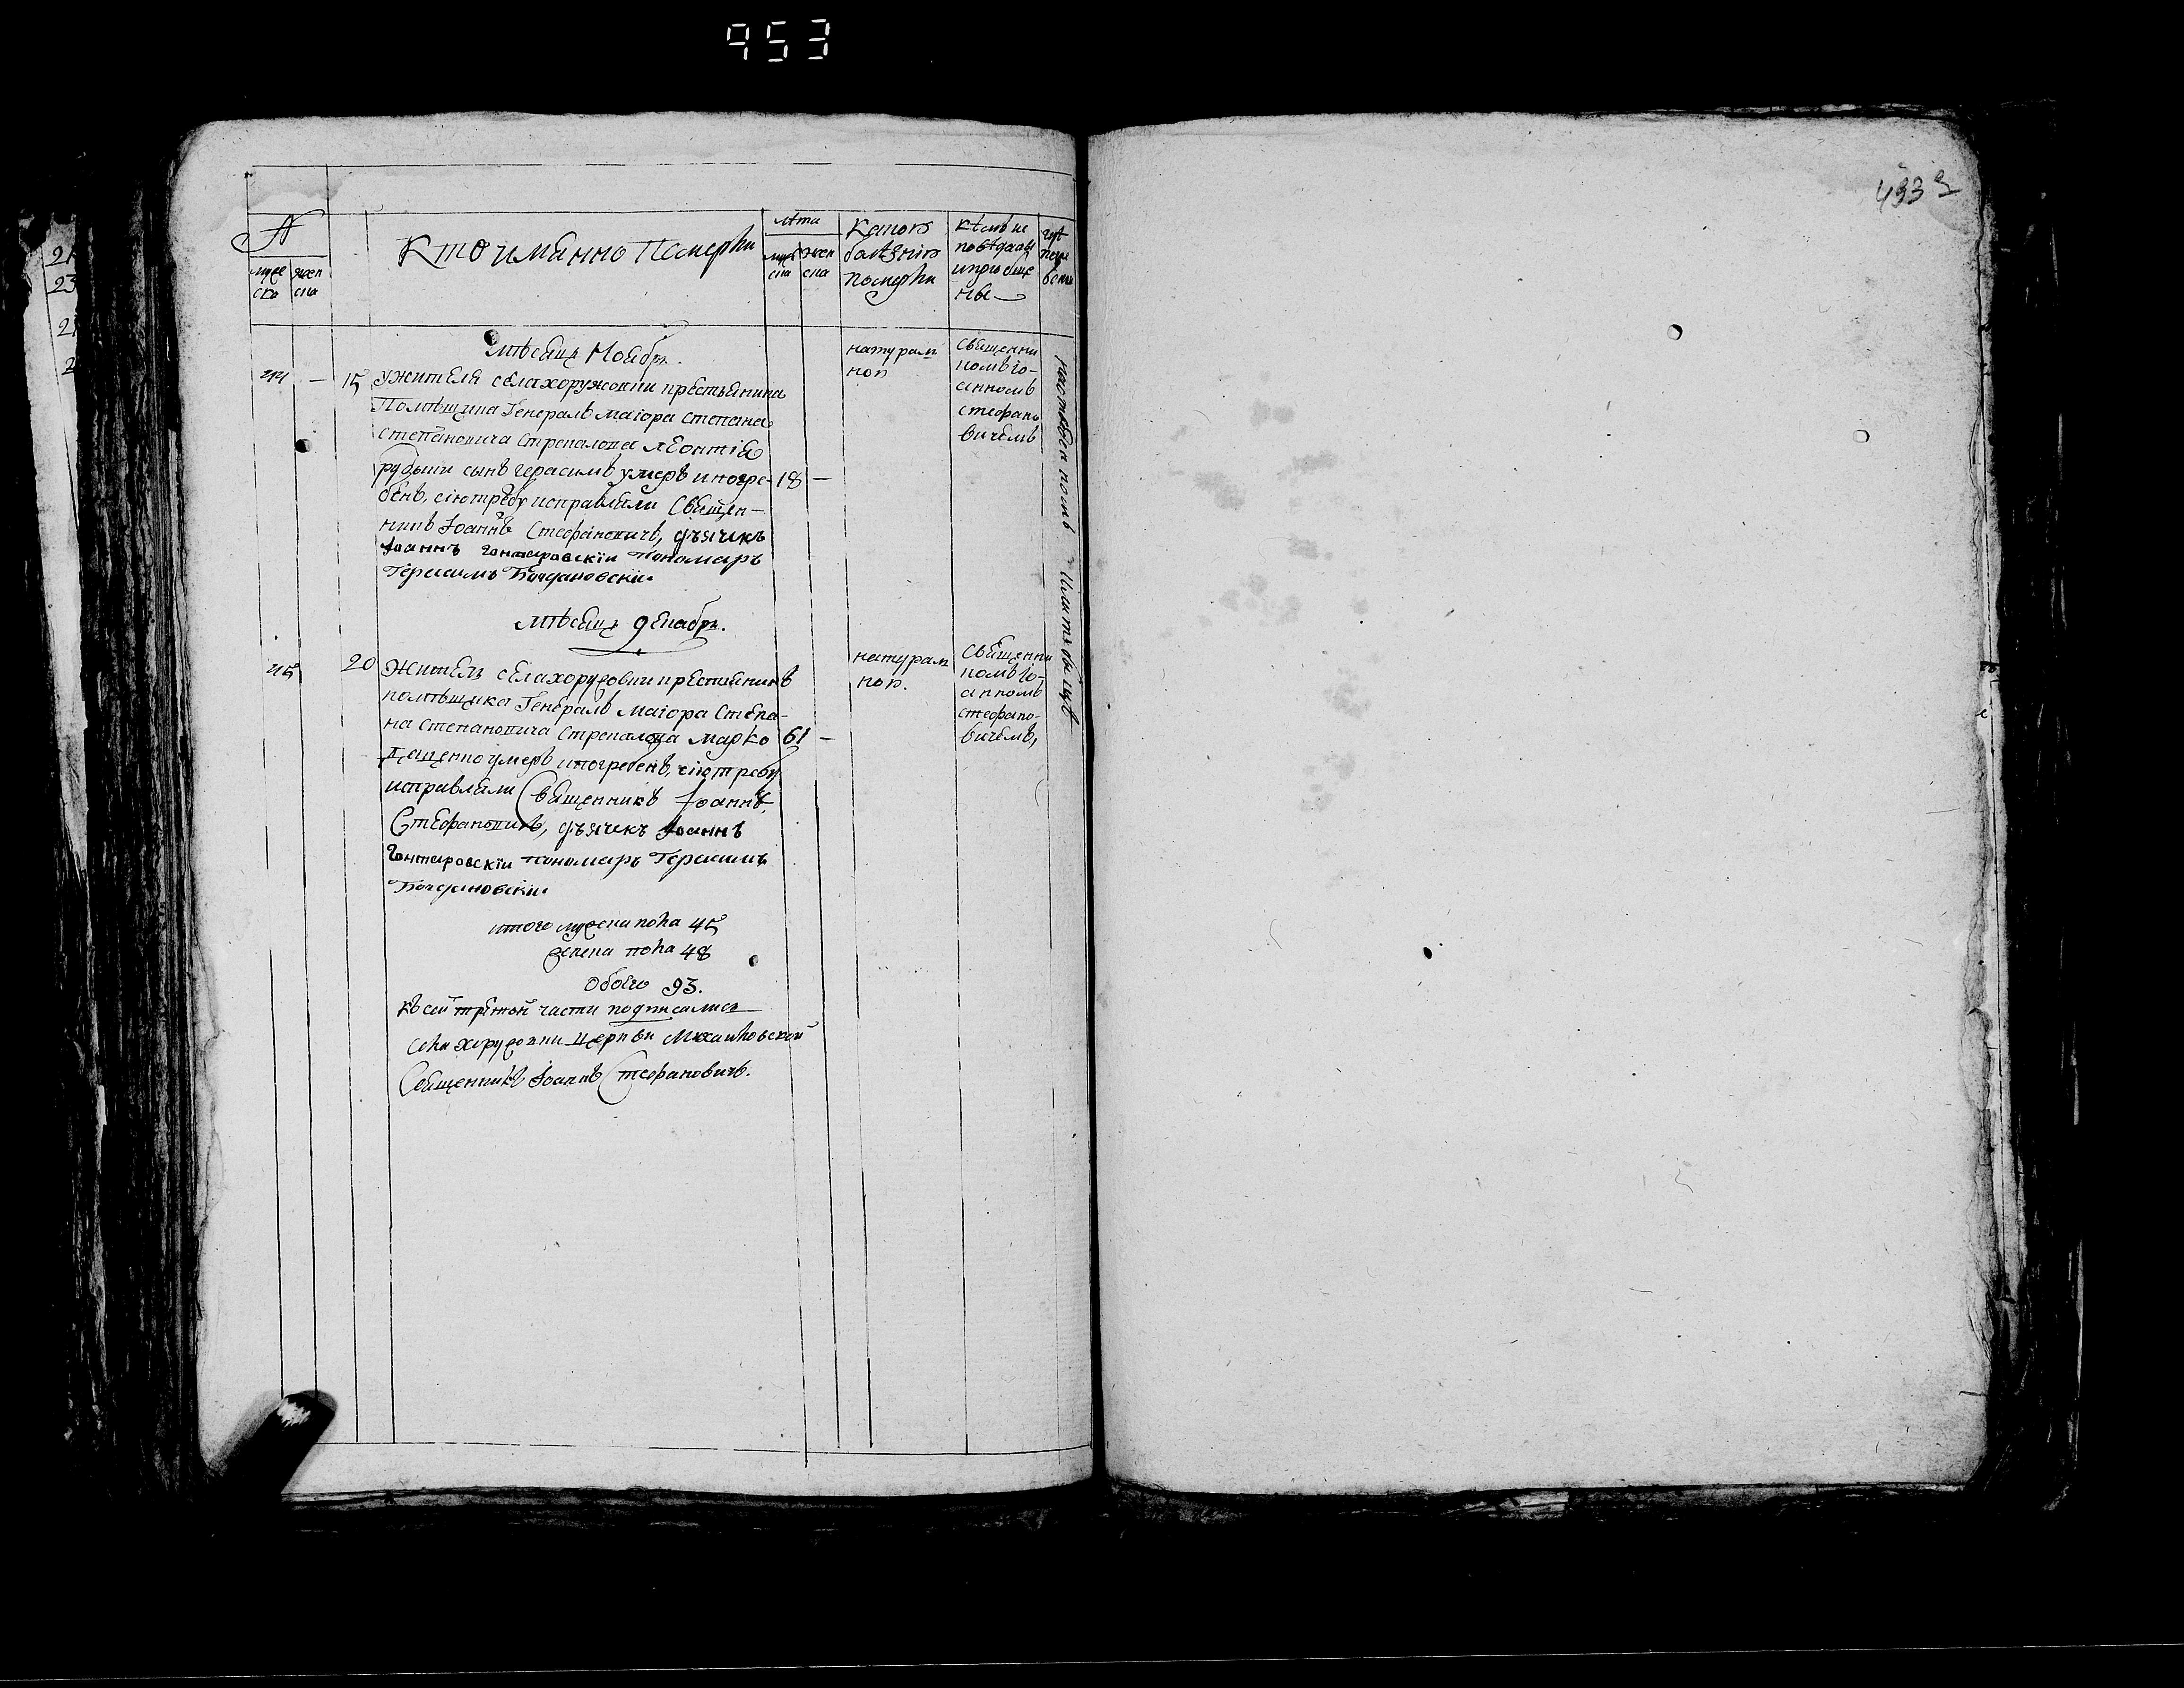 953
4933
№
муже ска
жен ска
Кто имянно Померли
лѣта
муже ска
жен ска
Какою болѣзнию померли
кѣмъ исповѣданы и приобщены
гдѣ погребены
Мѣсяцъ Ноябрь.
44 — 15
У жителя села хоружовки крестьянина
Помѣщика Генералъ Маіора Степана
Степановича Стрекалова Леонтія
Рудыки сынъ Герасимъ умеръ и погре- 18 —
бенъ, сію требу исправляли Священ-
никъ Іоаннъ Стефановичъ, дьячекъ
Іоаннъ Гонтаровскіи пономарь
Герасимъ Богдановскіи
натурал
ною
Священни
комъ Іо-
анномъ
Стефано
вичемъ
на отведенномъ кладбищѣ
мѣсяцъ Декабрь.
45 20
Житель села хоружовки крестьянинъ
помѣщика Генералъ Маіора Степа-
на Степановича Стрекалова Марко 61 —
умеръ и погребенъ, сію требу
исправляли Священникъ Іоаннъ
Стефановичъ, дьячекъ Іоаннъ
Гонтаровскіи пономарь Герасимъ
Богдановскіи
натурал
ною.
Священни
комъ Іо-
анномъ
Стефано-
вичемъ,
итого мужеска пола 45
женска пола 48
обоего 93.
Къ сей третей части подписались
села хоружовки церкви Михайловской
Священникъ Іоаннъ Стефановичъ.